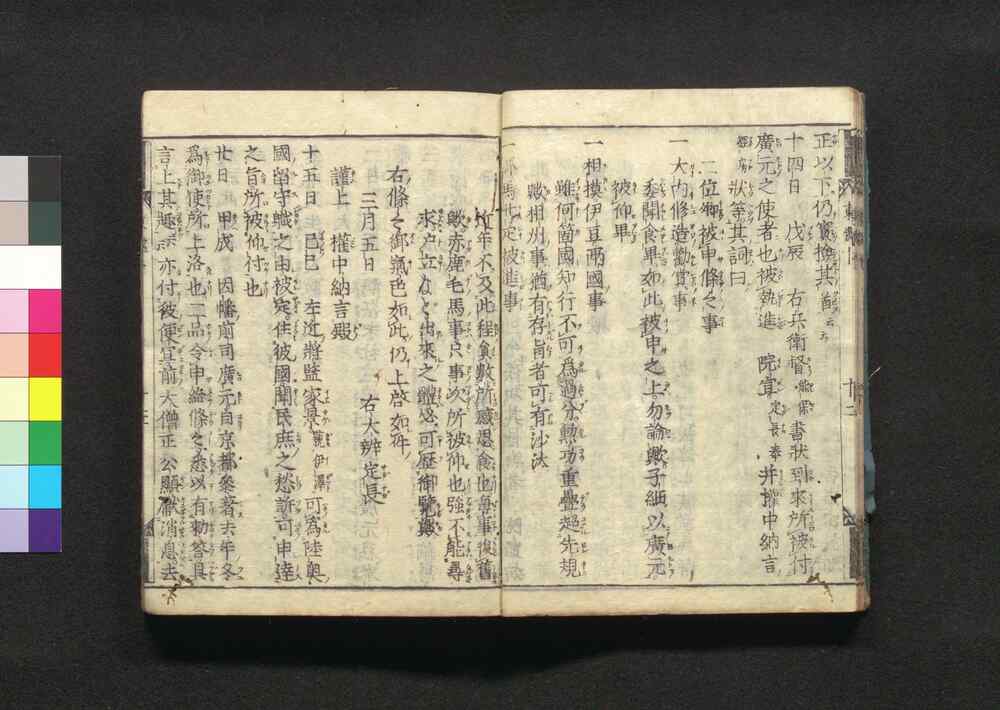 正以下仍實撿其首云云
十四日 戊辰 右兵衛督能保書狀到來所被付
廣元之使者也被執進 院宣定長奉并權中納言
經房狀等其詞曰
二位卿被申條々事
一 大内修造勸賞事
委聞食畢如此被申之上勿論歟子細以廣元
被仰畢
一 相摸伊豆兩國事
雖何箇國知行不可爲過分勲功重疊超先規
歟相州事猶有存旨者可有沙汰
一 御馬
被進事
近年不及此程員數所感思食也每事復舊
歟赤鹿毛馬事只事次所被仰也強不能尋
求户立
出來之
可歴御覽歟
右條々御氣色如此仍上啓如件
三月五日 右大辨定長
謹上 權中納言殿
十五日 己巳 左近將監家景號伊澤可爲陸奥
國留守職之由被定住彼國聞民庶之愁訴可申達
之旨所被仰付也
廿日 甲戌 因幡前司廣元自京都參著去年冬
爲御使所上洛也二品令申給條々悉以有勅答具
言上其趣云云亦付彼便宜前大僧正公顯獻消息去